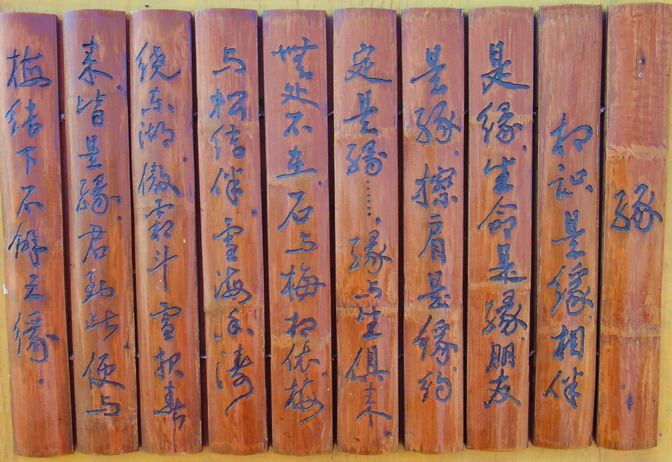 缘
相识是缘,相伴
是缘,生命是缘,朋友
是缘,擦肩是缘,约
定是缘……缘与生俱来,
無处不在,石与梅相依,梅
与松结伴,雪海香涛,
绕东湖,傲霜斗雪报春
来,皆是缘,君到此,便与
梅结下不解之缘。